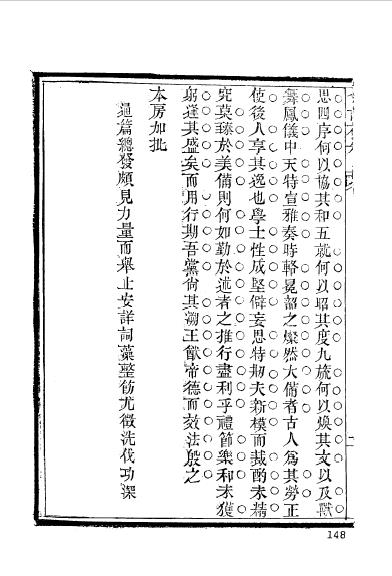 思四序何以協其和五就何以昭其度九旒何以煥其文以及獸
舞鳳儀中天特宣雅奏時輅冕韶之燦然大備者古人為其勞正
使後人享其逸也學士性成堅僻妄思特刱夫新模而裁酌未精
究莫臻於美備則何如勤於述者之推行盡利乎禮節樂和未獲
躬逢其盛矣而用行期吾黨尚其溯王猷帝德而效法殷之
本房加批
通篇總發頗見力量而舉止安詳詞藻整飭尤徵洗伐功深
148